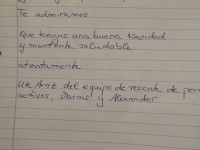 Te admiramos
Que tengas una buena Navidad
y mantente saludable
atentamente
del equipo de rescate de
activos, y Alexander